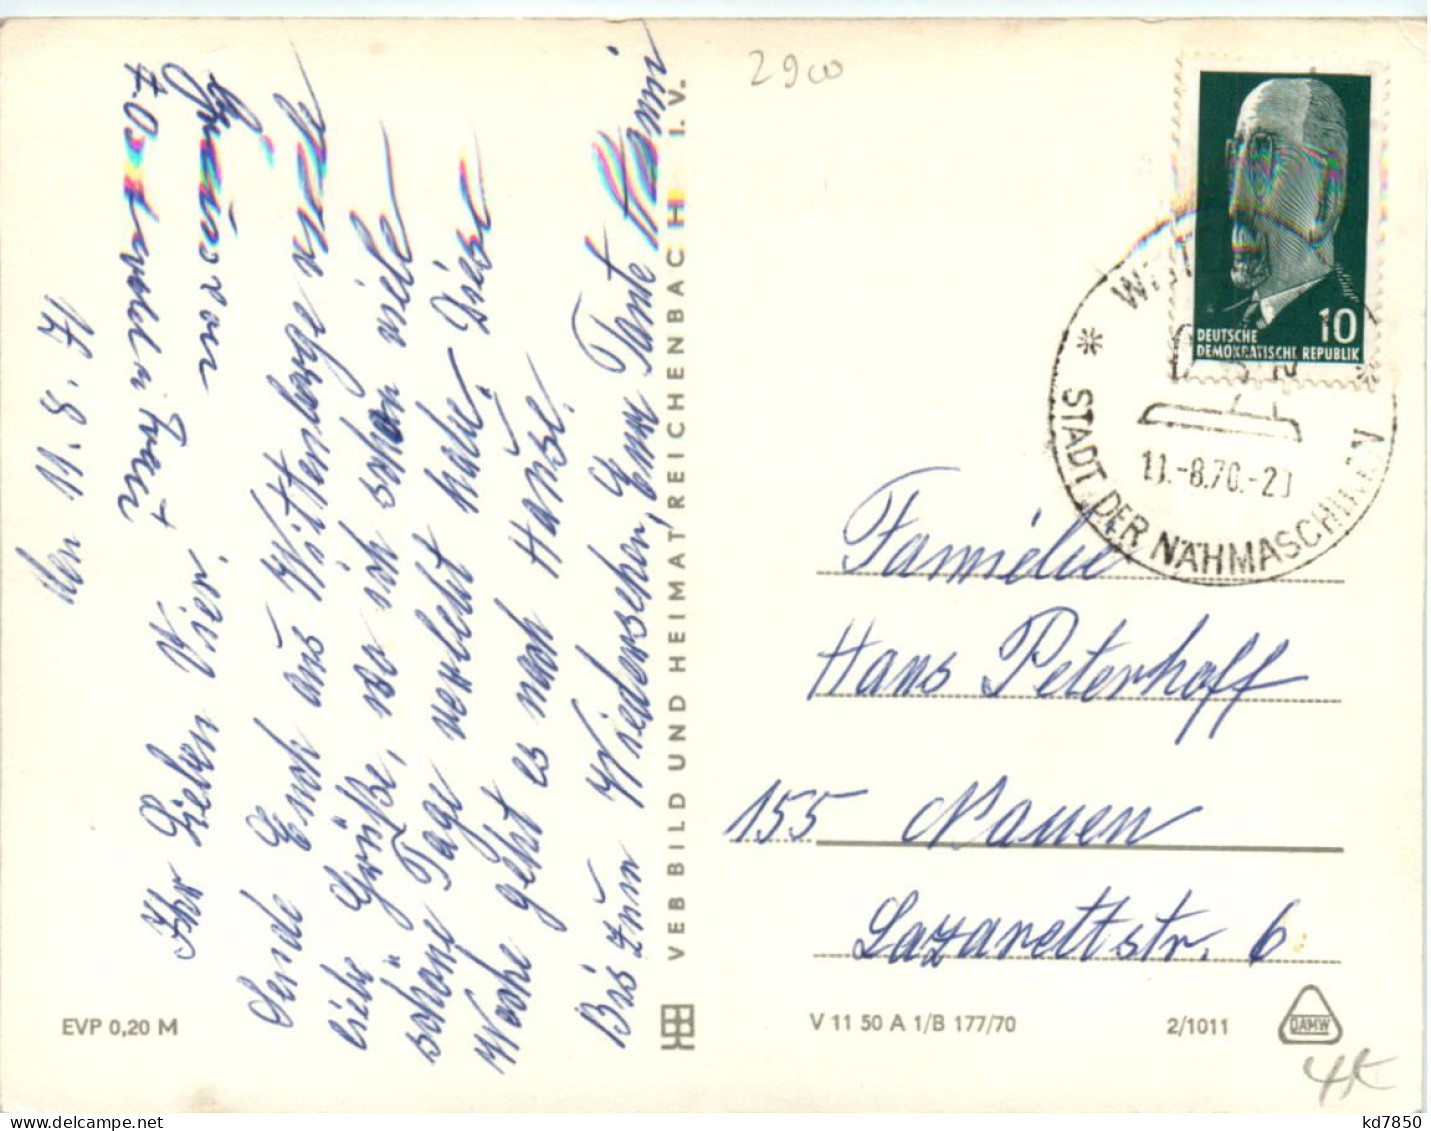 den 11.8.71
Ihr Lieben Vier!
Sende Euch aus Wittenberge viele
liebe Grüße, wo ich schon viele
schöne Tage verlebt habe. Diese
Woche geht es nach Hause.
Bis zum Wiedersehen, Eure Tante Mami
Grüße von
VEB BILD UND HEIMAT REICHENBACH I. V.
EVP 0,20 M
2900
10
DEUTSCHE
DEMOKRATISCHE REPUBLIK
STADT DER NÄHMASCHINEN
11.-8.70.-20
Familie
Hans Peterhoff
155 Nauen
Lazarettstr. 6
V 11 50 A 1/B 177/70
2/1011
DAMW
kd7850